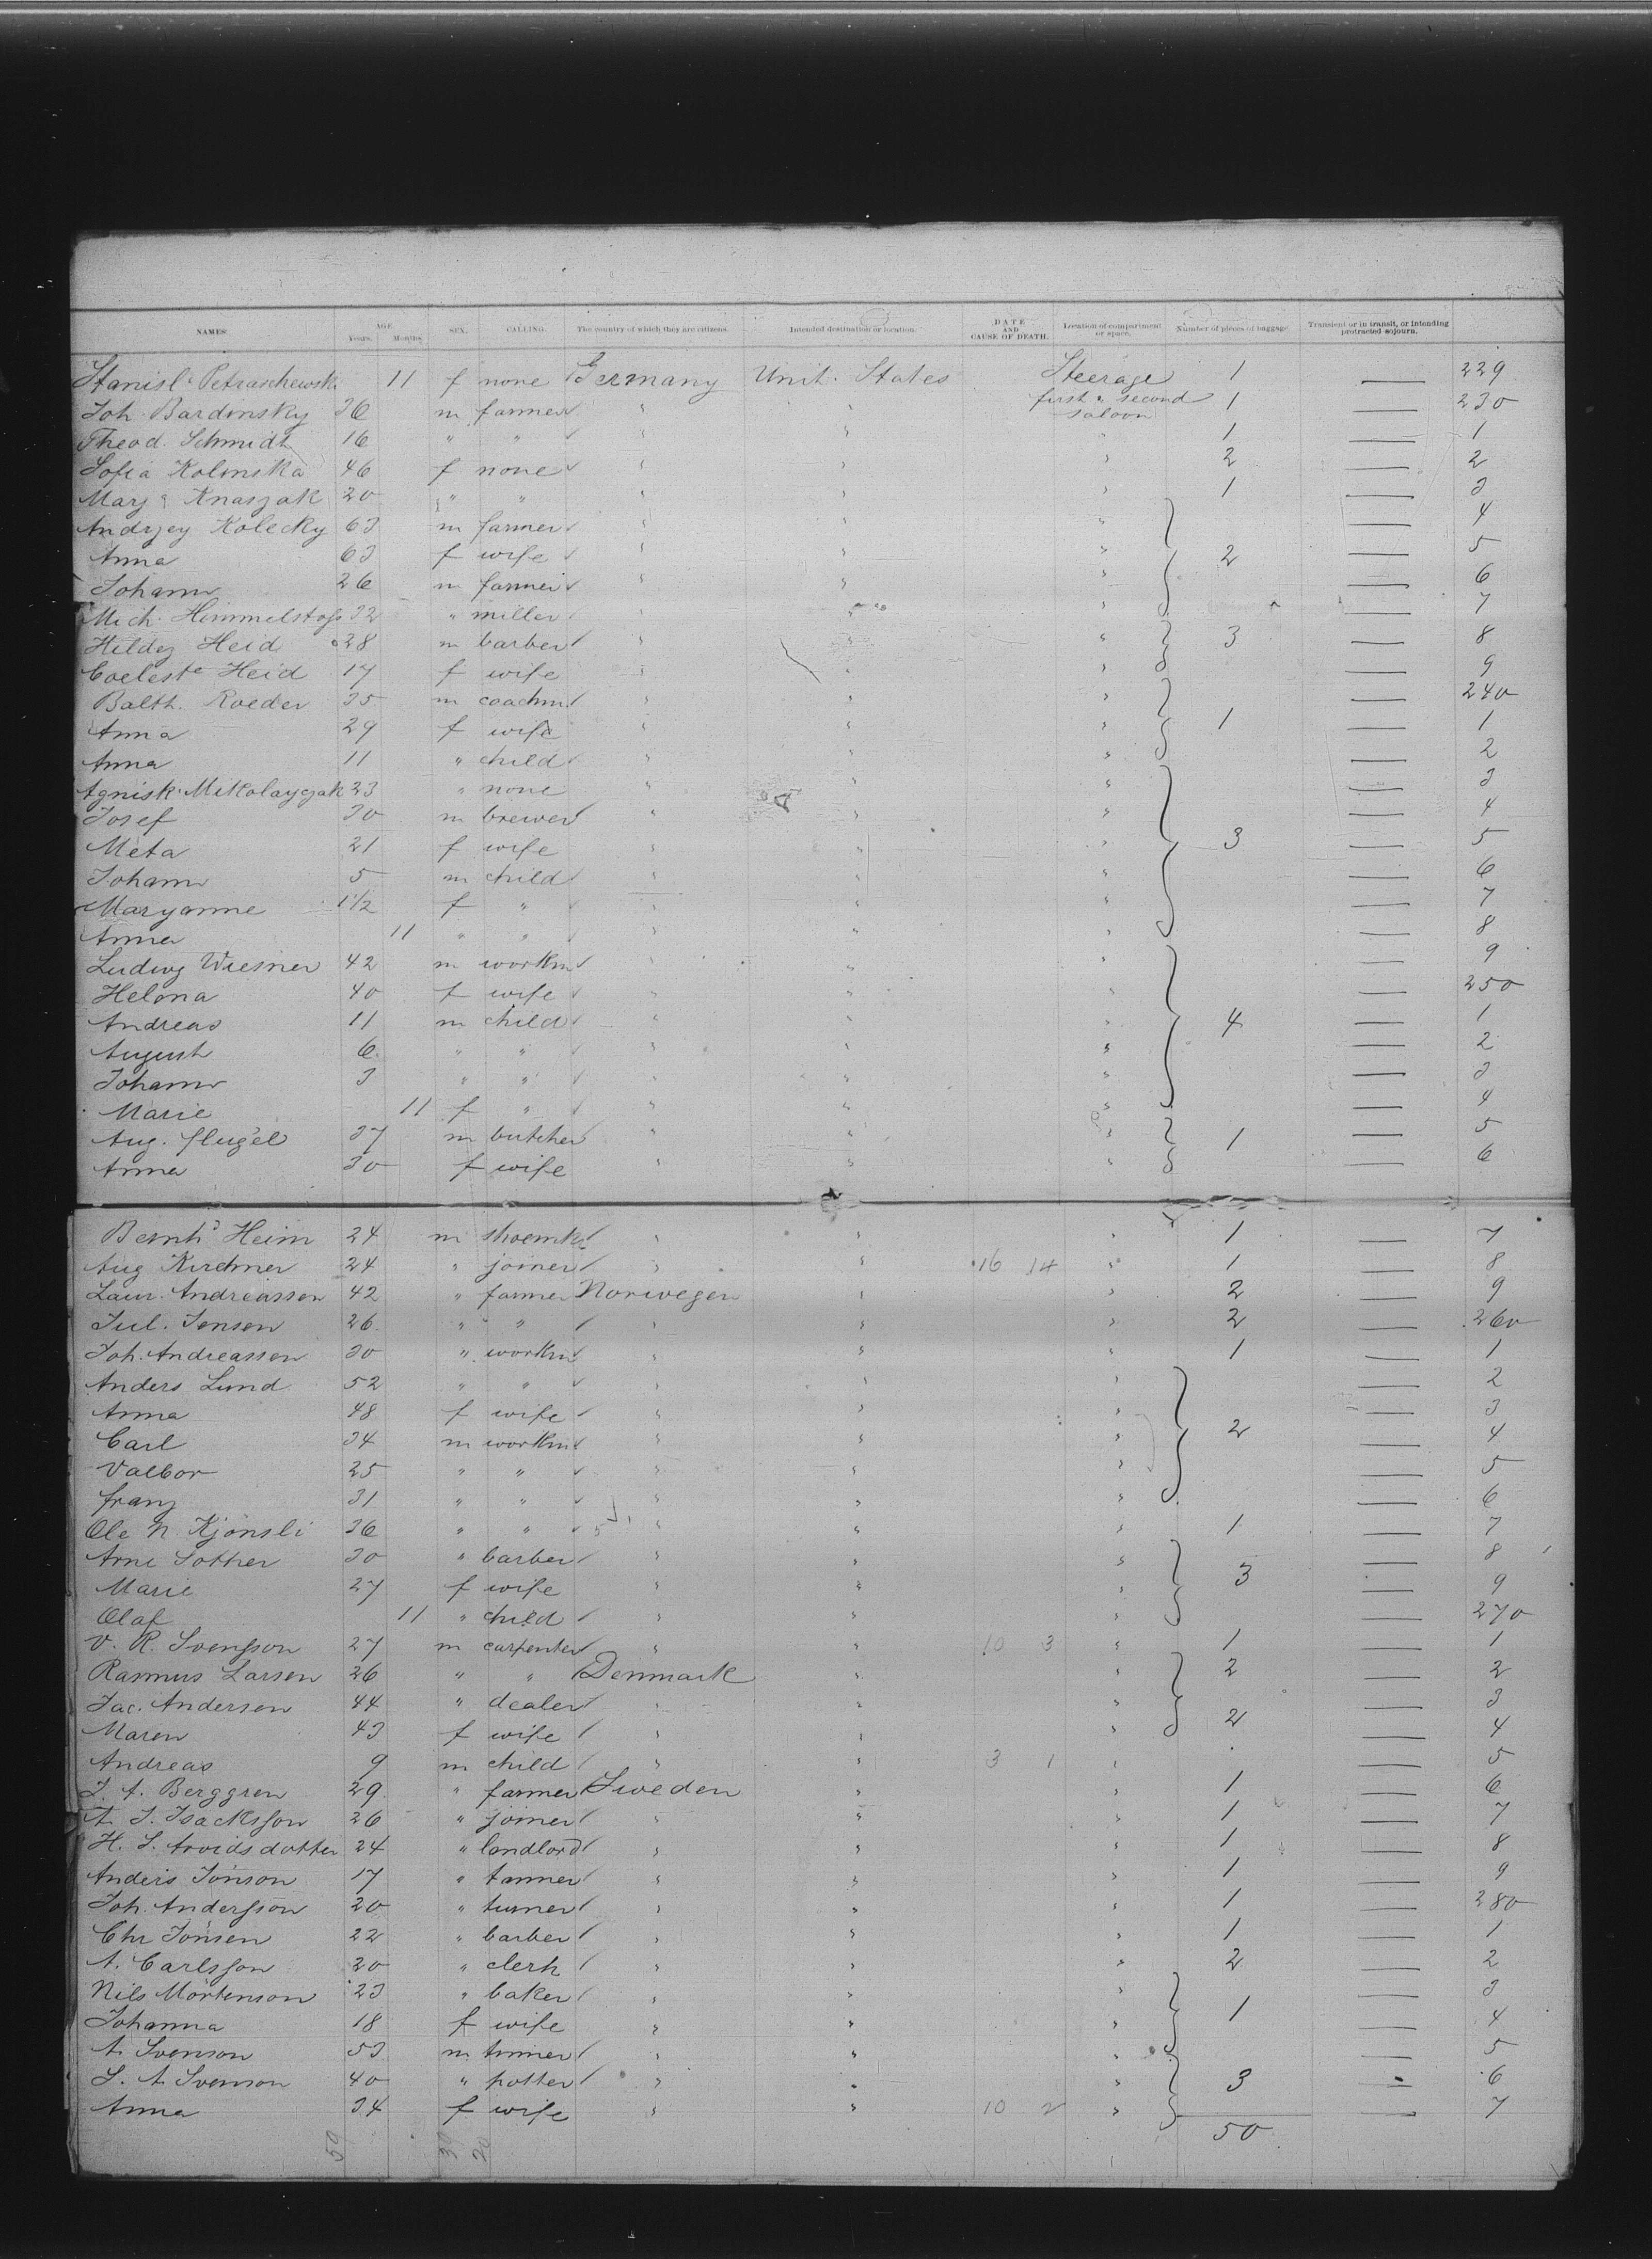 NAMES. AGE Years. Months. SEX. CALLING. The country of which they are citizens. Intended destination or location. DATE AND CAUSE OF DEATH. Location of compartment or space. Number of pieces of baggage Transient or in transit, or intending protracted sojourn.
Stanisl. Petraschewsk 11 f none Germany Unit. States Steerage 1 — 229
Joh. Bardonsky 36 m farmer " " first & second saloon 1 — 230
Theod. Schmidt 16 " " " " " 1 — 1
Sofia Kolinska 46 f none " " " 2 — 2
Mary Knaszak 20 " " " " " 1 — 3
Andrzey Kolecky 63 m farmer " " " — 4
Anna 63 f wife " " " 2 — 5
Johann 26 m farmer " " " — 6
Mich. Himmelstoss 32 " miller " " " — 7
Hildeg Heid 28 m barber " " " 3 — 8
Coeleste Heid 17 f wife " " " — 9
Balth. Roeder 35 m coachm. " " " — 240
Anna 29 f wife " " " 1 — 1
Anna 11 " child " " " — 2
Agnisk. Mikolayczak 23 " none " " " — 3
Josef 30 m brewer " " " — 4
Meta 21 f wife " " " 3 — 5
Johann 5 m child " " " — 6
Maryanne 1 1/2 f " " " " — 7
Anna 11 " " " " " — 8
Ludwg Wiesner 42 m workm " " " — 9
Helena 40 f wife " " " — 250
Andreas 11 m child " " " 4 — 1
August 6 " " " " " — 2
Johann 3 " " " " " — 3
Marie 11 f " " " " — 4
Aug. Flugel 37 m butcher " " " 1 — 5
Anna 30 f wife " " " — 6
Bernhd Heim 24 m shoemkr " " " 1 — 7
Aug Kirchner 24 " joiner " " 16 14 " 1 — 8
Laur. Andreassen 42 " farmer Norwegen " " 2 — 9
Jul. Jensen 26 " " " " " 2 — 260
Joh. Andreassen 30 " workm " " " 1 — 1
Anders Lund 52 " " " " " — 2
Anna 48 f wife " " " — 3
Carl 34 m workm " " " 2 — 4
Valbor 25 " " " " " — 5
Franz 31 " " " " " — 6
Ole N. Kjönsli 36 " " " " " 1 — 7
Arne Sother 30 " barber " " " — 8
Marie 27 f wife " " " 3 — 9
Olaf 11 " child " " " — 270
V. R. Svensson 27 m carpenter " " 10 3 " 1 — 1
Rasmus Larsen 26 " " Denmark " " 2 — 2
Jac. Andersen 44 " dealer " " " — 3
Maren 43 f wife " " " 2 — 4
Andreas 9 m child " " 3 1 " — 5
J. A. Berggren 29 " farmer Sweden " " 1 — 6
A. J. Isacksson 26 " joiner " " " 1 — 7
H. S. Arvidsdotter 24 " landlord " " " 1 — 8
Anders Jönson 17 " tanner " " " 1 — 9
Joh. Andersson 20 " turner " " " 1 — 280
Chr Jönsen 22 " barber " " " 1 — 1
A. Carlsson 20 " clerk " " " 2 — 2
Nils Mörtenson 23 " baker " " " — 3
Johanna 18 f wife " " " 1 — 4
A. Svenson 53 m tinner " " " — 5
S. A. Svenson 40 " potter " " " 3 — 6
Anna 34 f wife " " 10 2 " — 7
59 39 20 50